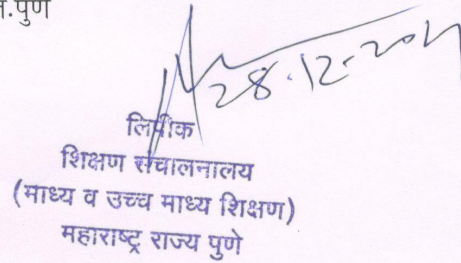 .पुणे
28.12.20
लिपीक
शिक्षण संचालनालय
(माध्य व उच्च माध्य शिक्षण)
महाराष्ट्र राज्य पुणे